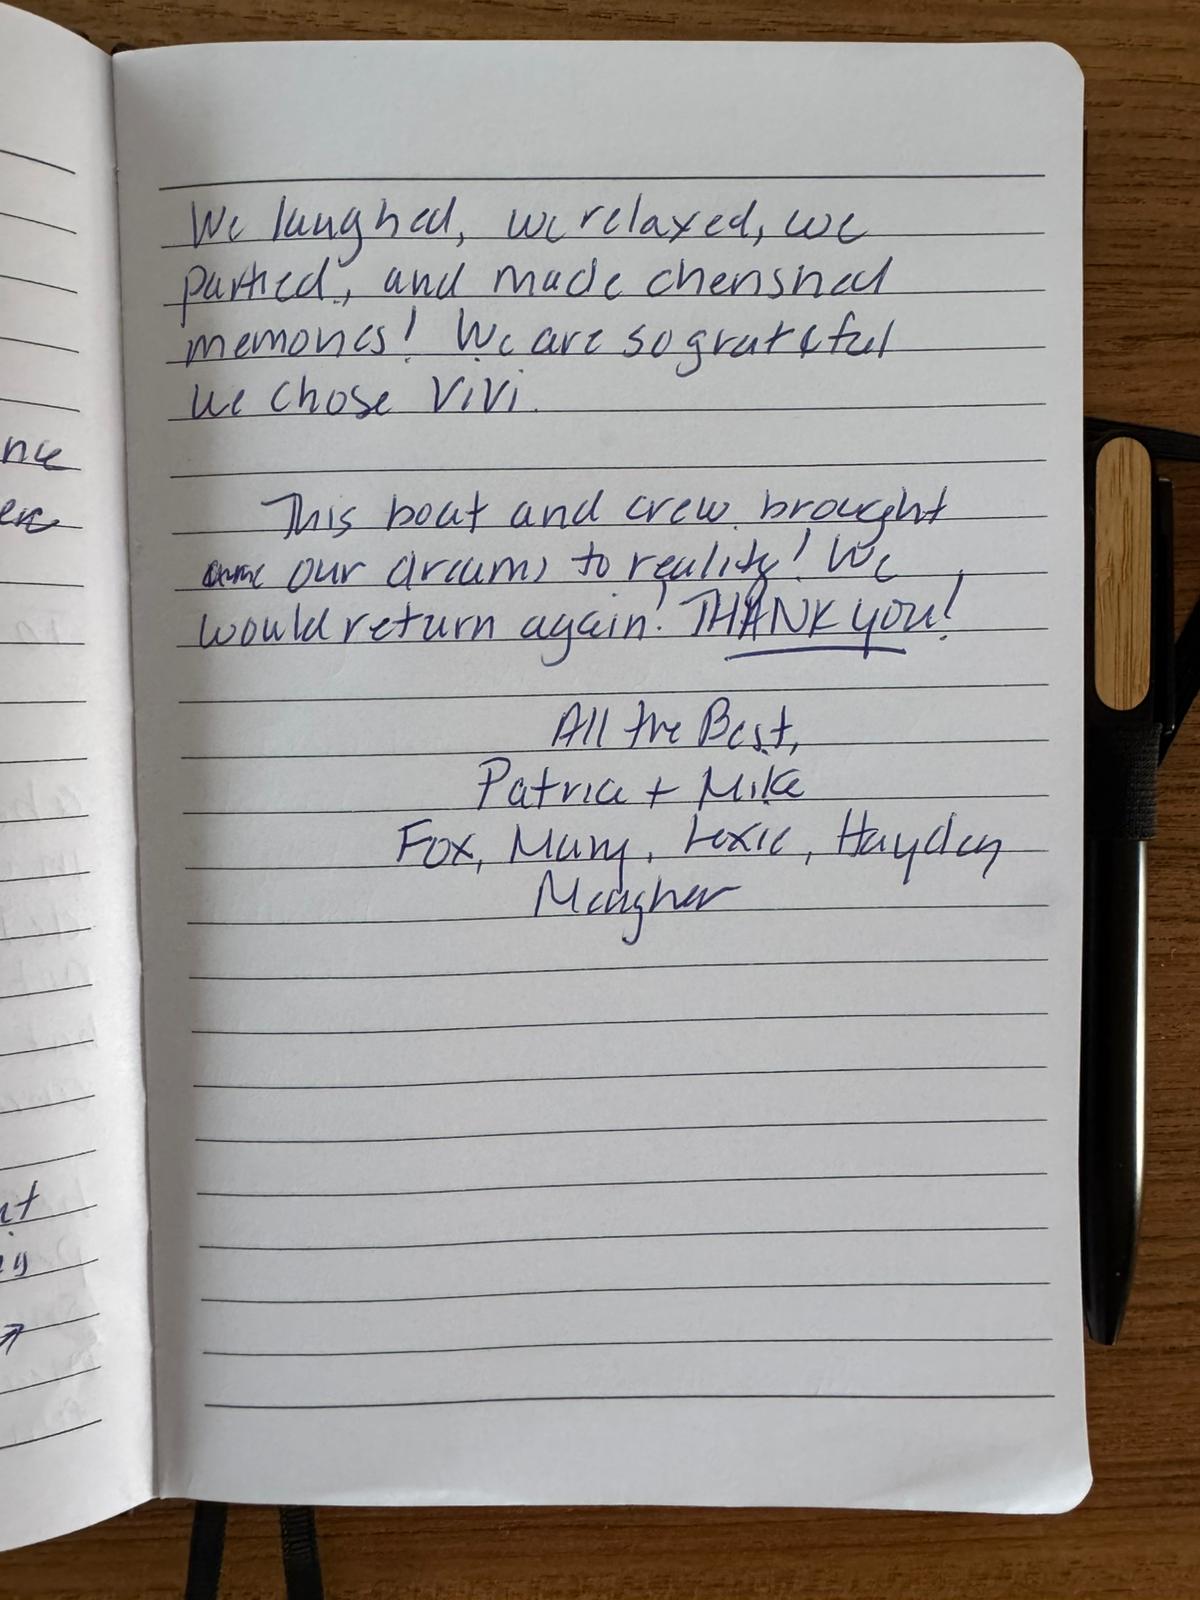 We laughed, we relaxed, we
partied, and made cherished
memories! We are so grateful
we chose ViVi.
This boat and crew brought
our dreams to reality! We
would return again! THANK you!
All the Best,
Patrice + Mike
Fox, Many, Lexie, Hayden
Meagher
nce
ere
nt